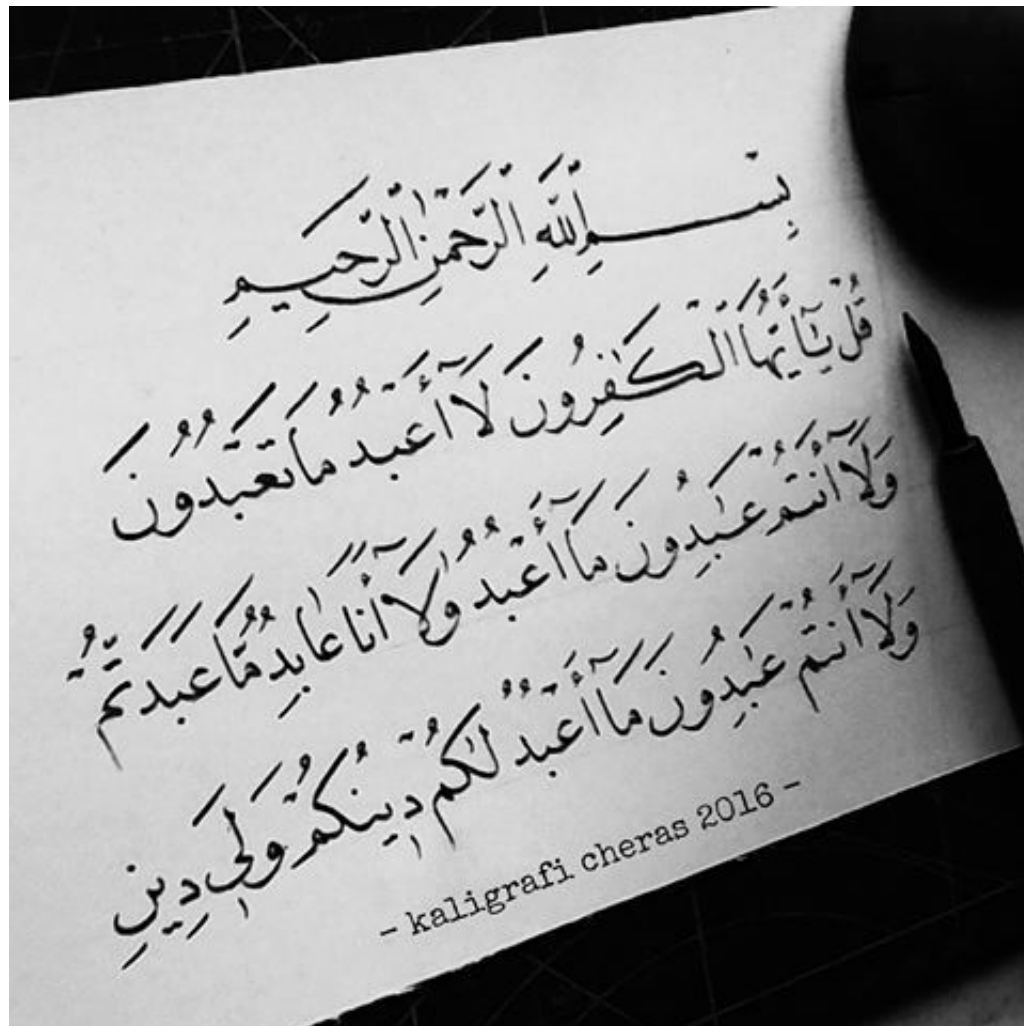 بِسْمِ اللَّهِ الرَّحْمَٰنِ الرَّحِيمِ
قُلْ يَٰٓأَيُّهَا الْكَٰفِرُونَ لَآ أَعْبُدُ مَا تَعْبُدُونَ
وَلَآ أَنتُمْ عَٰبِدُونَ مَآ أَعْبُدُ وَلَآ أَنَا۠ عَابِدٌ مَّا عَبَدتُّمْ
وَلَآ أَنتُمْ عَٰبِدُونَ مَآ أَعْبُدُ لَكُمْ دِينُكُمْ وَلِىَ دِينِ
- kaligrafi cheras 2016 -